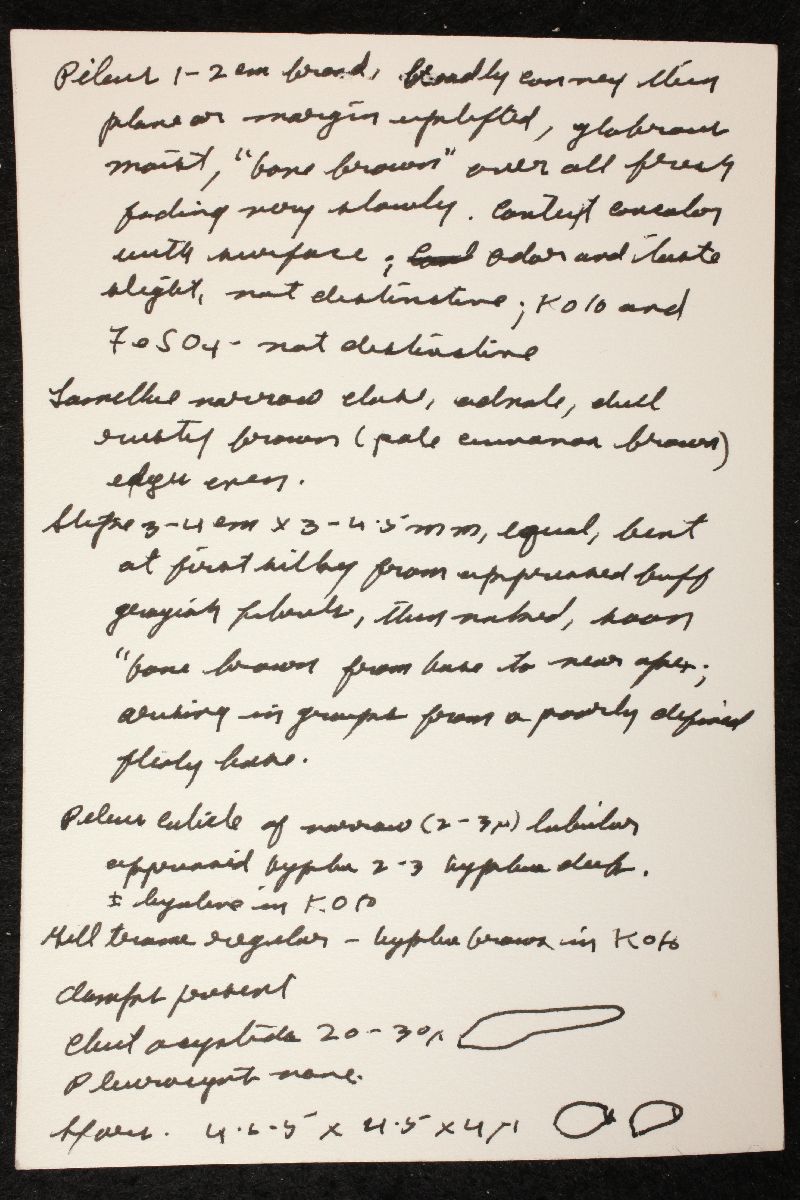 Pileus 1-2 cm broad, broadly convex then
plane or margin uplifted, glabrous
moist, "bone brown" over all fresh
fading very slowly. Context concolor
with surface; odor and taste
slight, not distinctive; KOH and
FeSO4 - not distinctive
Lamellae narrow close, adnate, dull
rusty brown (pale cinnamon brown)
edges even.
Stipe 3-4 cm x 3-4.5 mm, equal, bent
at first silky from appressed buff
grayish fibrils, then naked, soon
"bone brown from base to near apex;
arising in groups from a poorly defined
fleshy base.
Pileus cuticle of narrow (2-3µ) tubular
appressed hyphae 2-3 hyphae deep.
± hyaline in KOH
Gill trama regular - hyphae brown in KOH
Clamps present
Cheilocystidia 20-30µ
Pleurocyst none.
Spores. x 4.5 x 4µ